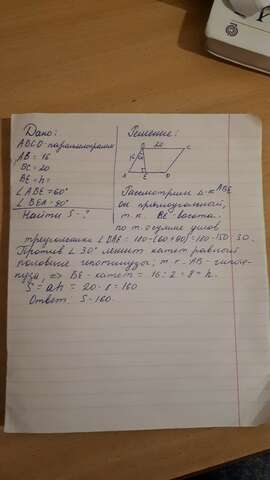 Дано:
ABCD-параллелограмм
AB = 16
BC = 20
BE = h
∠ABE = 60°
∠BEA = 90°
Найти S - ?
Решение:
B 20 C
16 60
A E D
Рассмотрим Δ-к ABE,
он прямоугольный,
т.к. BE высота.
по т. о сумме углов
треугольника ∠BAE = 180-(60+90) = 180-150=30.
Против ∠30° лежит катет равный
половине гипотинузы; т.к. AB-гипоте-
нуза, ⇒ BE - катет = 16:2 = 8 = h.
S = ah = 20·8 = 160
Ответ: S-160.